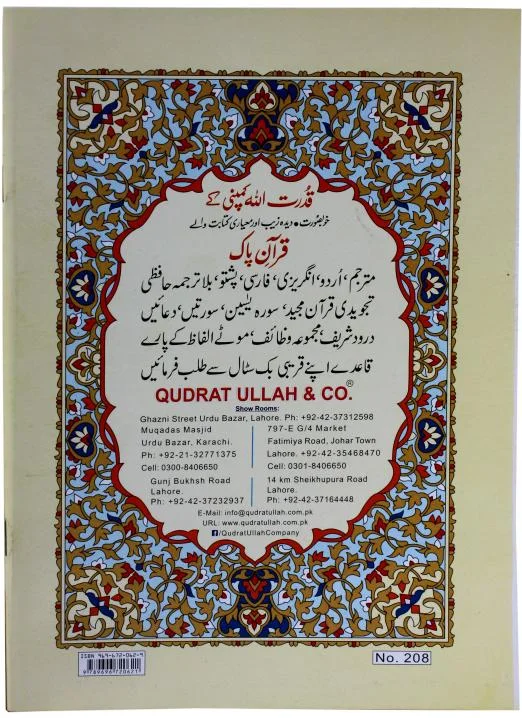 قدرت اللہ کمپنی کے
خوبصورت • دیدہ زیب اور معیاری کتابت والے
قرآن پاک
مترجم، اُردو، انگریزی، فارسی، پشتو، بلا ترجمہ حافظی
تجویدی قرآن مجید، سورہ یٰسین، سورتیں، دعائیں
درود شریف، مجموعہ وظائف، موٹے الفاظ کے پارے
قاعدے اپنے قریبی بک سٹال سے طلب فرمائیں
QUDRAT ULLAH & CO.®
Show Rooms:
Ghazni Street Urdu Bazar, Lahore. Ph: +92-42-37312598
Muqadas Masjid
Urdu Bazar, Karachi.
Ph: +92-21-32771375
Cell: 0300-8406650
797-E G/4 Market
Fatimiya Road, Johar Town
Lahore. +92-42-35468470
Cell: 0301-8406650
Gunj Bukhsh Road
Lahore.
Ph: +92-42-37232937
14 km Sheikhupura Road
Lahore.
Ph: +92-42-37164448
E-Mail: info@qudratullah.com.pk
URL: www.qudratullah.com.pk
/QudratUllahCompany
ISBN 969-672-062-9
9 789696 720621
No. 208